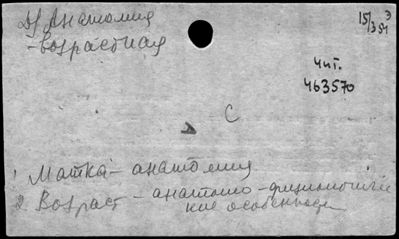 Др Анатомия
- возрастная
15/I 51
Э
Чит.
463570
С
1 Матка - анатомия
2 Возраст - анатомо-физиологические особенности